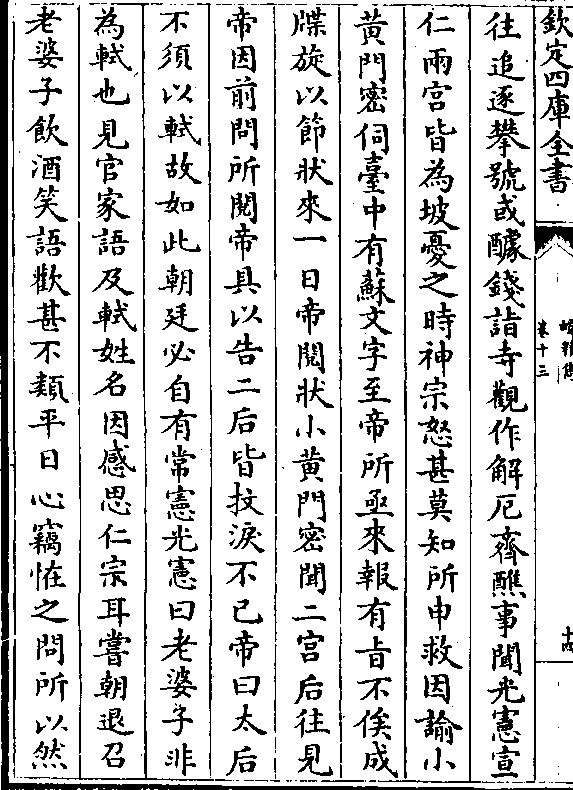 欽定四庫全書
卷十三
十四
往追逐攀號或醵錢詣寺觀作解厄齋醮事聞光憲宣
仁兩宫皆為坡憂之時神宗怒甚莫知所申救因諭小
黄門密伺臺中有蘇文字至帝所亟來報有旨不俟成
牒旋以節狀來一日帝閱狀小黄門密聞二宫后往見
帝因前問所閱帝具以告二后皆抆淚不已帝曰太后
不須以軾故如此朝廷必自有常憲光憲曰老婆子非
為軾也見官家語及軾姓名因感思仁宗耳嘗朝退召
老婆子飲酒笑語歡甚不類平日心竊怪之問所以然